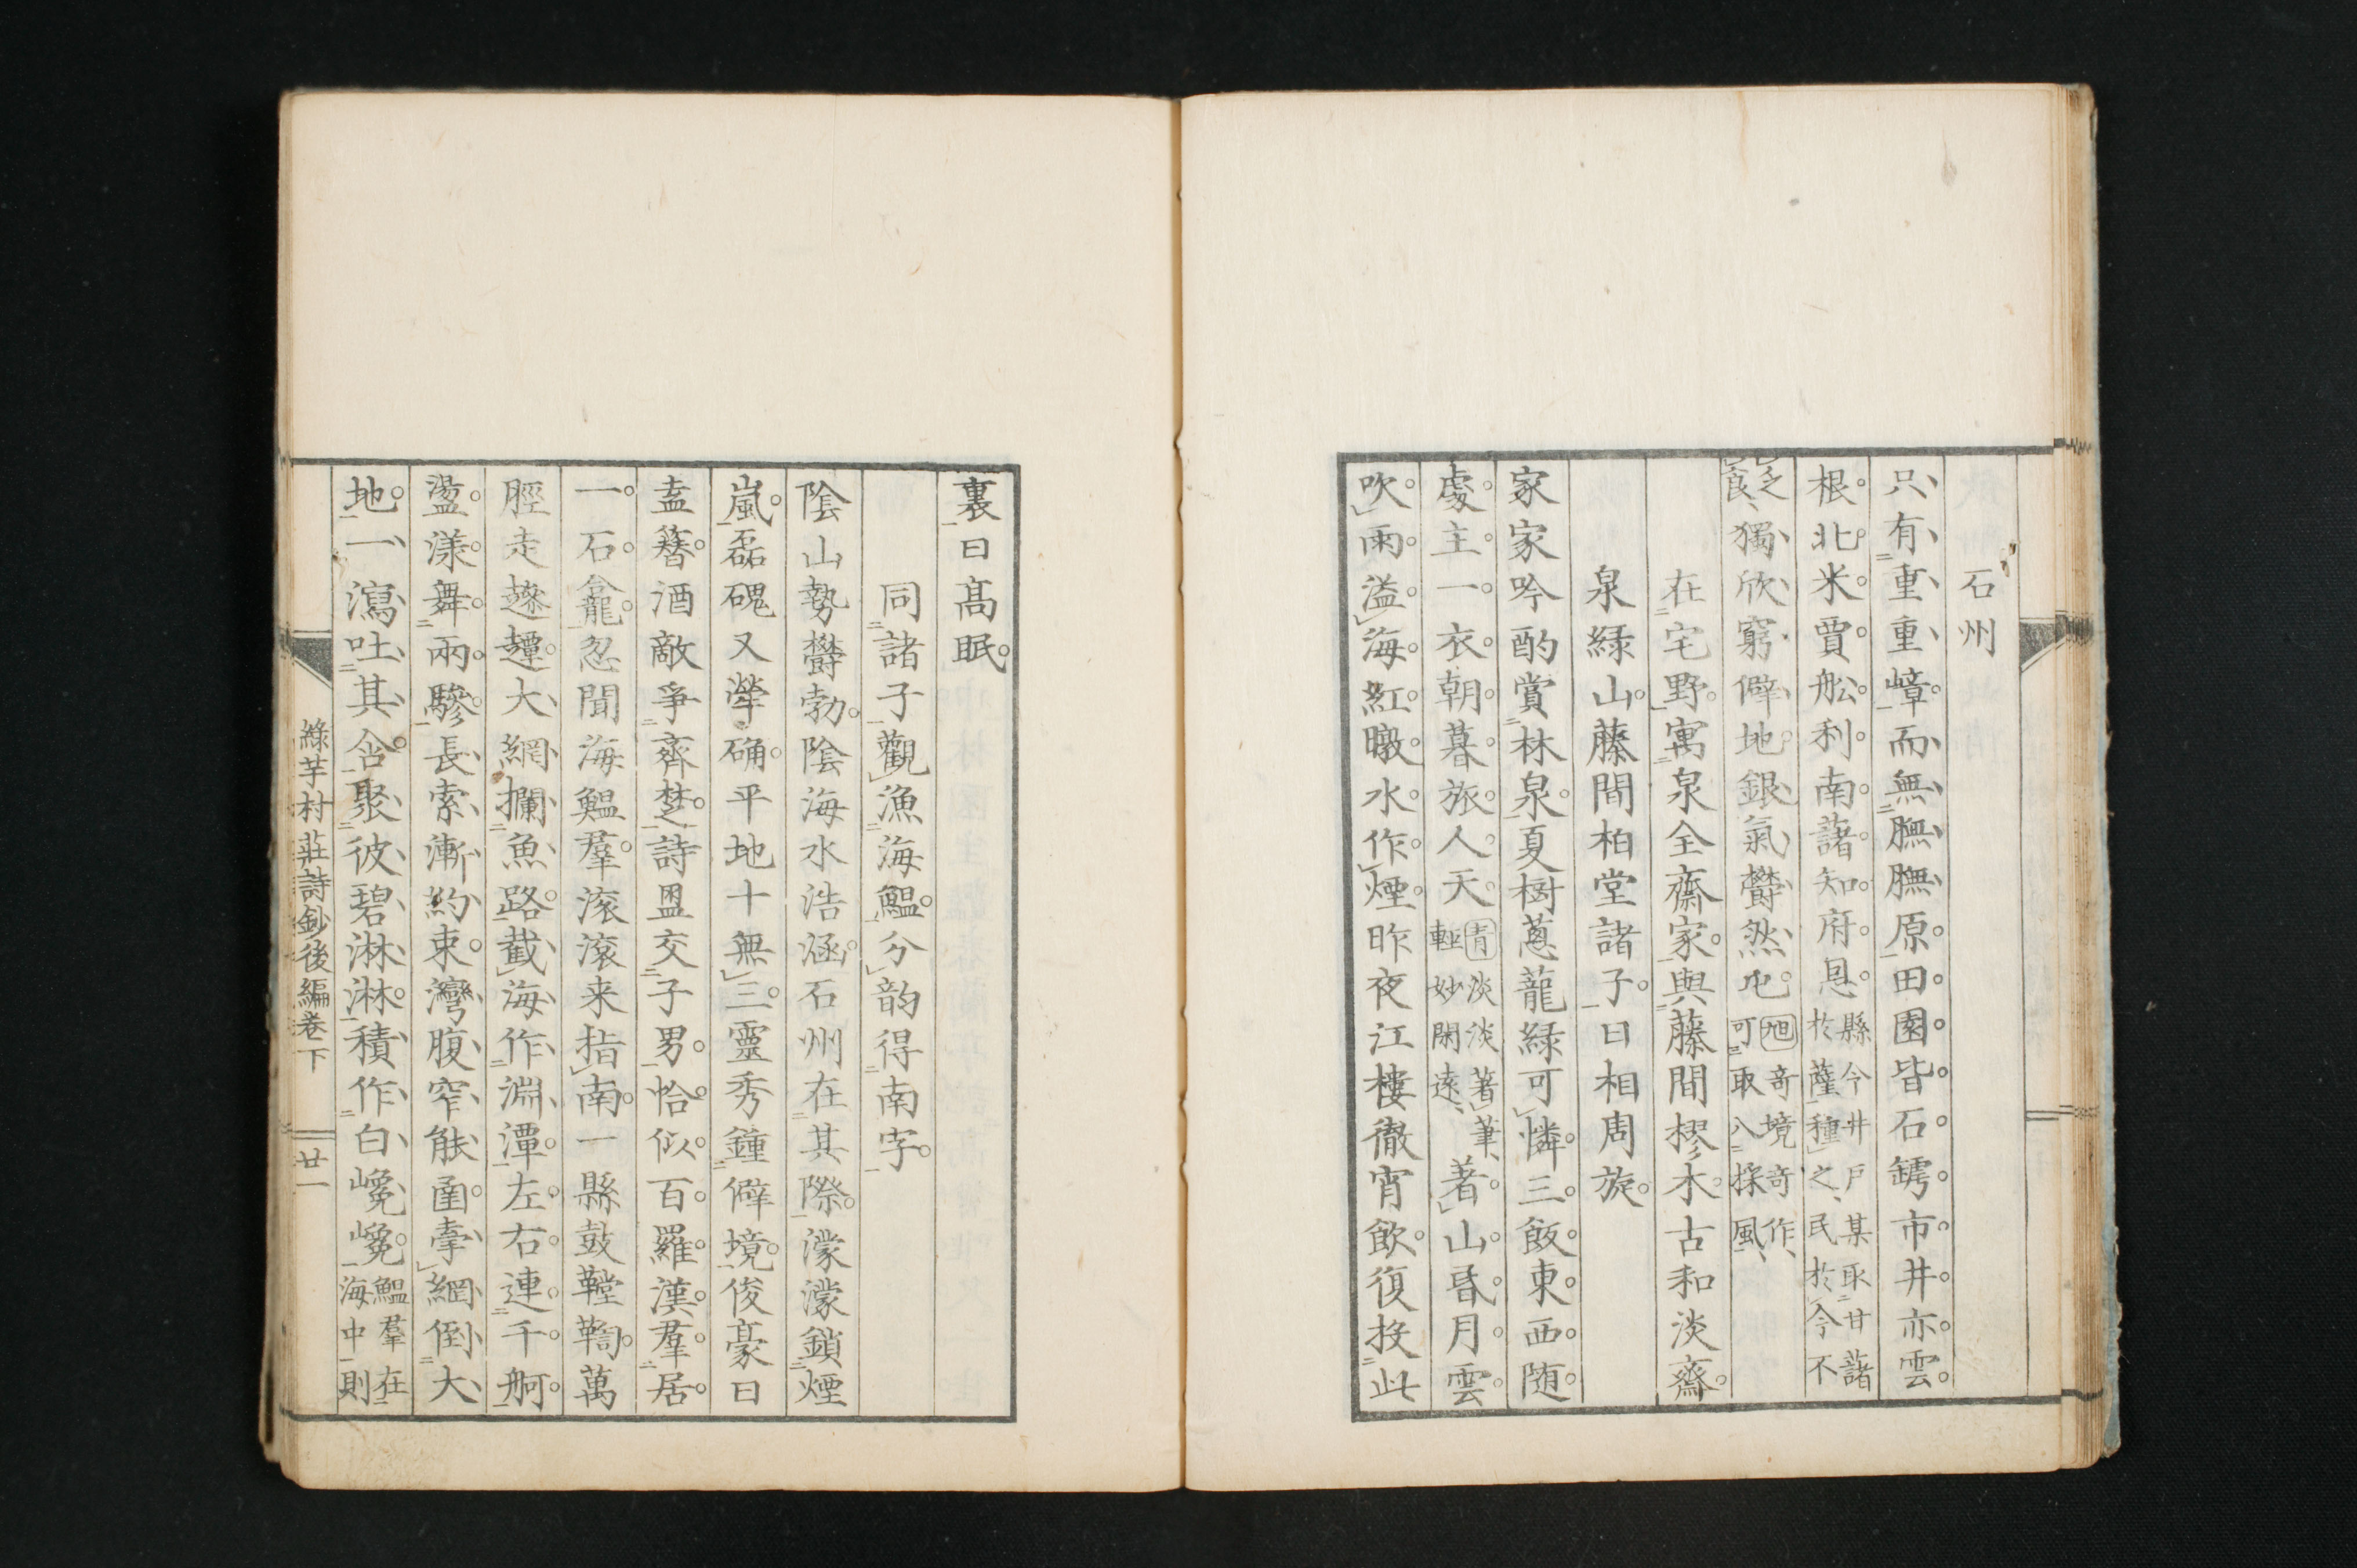 石州
只有重重嶂而無膴膴原田園皆石鏬市井亦雲
根北米賈舩利南藷知府恩縣今井戸某取甘藷
於薩種之民於今不
乏食獨欣窮僻地銀氣欝然屯旭奇境奇作
可取入採風
在宅野寓泉全齋家與藤間樛木古和淡齋
泉綠山藤間柏堂諸子日相周旋
家家吟酌賞林泉夏樹蔥蘢綠可憐三飯東西随
處主一衣朝暮旅人天青淡淡著筆
輕妙閑遠著山昏月雲
吹雨溢海紅暾水作煙昨夜江樓徹宵飲復投此
裏日髙眠
同諸子觀漁海鰮分韵得南字
陰山勢欝勃陰海水浩涵石州在其際濛濛鎖煙
嵐磊磈又犖确平地十無三靈秀鍾僻境俊豪日
盍簪酒敵爭齊楚詩盟交子男恰似百羅漢羣居
一石龕忽聞海鰮羣滚滾来指南一縣鼓鞺鞳萬
脛走趁趯大網攔魚路截海作淵潭左右連千舸
盪漾舞兩驂長索漸約束灣腹窄觥圅搴網倒大
地一瀉吐其含聚彼碧淋淋積作白巉巉鰮羣在
海中則
綠芋村莊詩鈔後編卷下
廿一